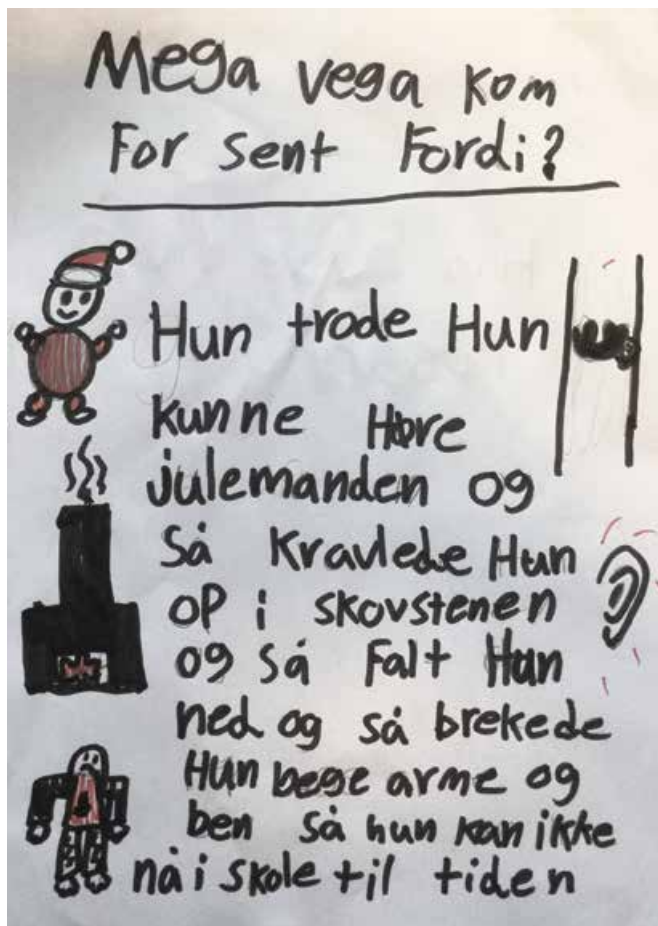 Mega vega kom
For sent Fordi?
Hun trode Hun
kunne Høre
julemanden og
så kravlede Hun
op i skovstenen
og så Falt Hun
ned og så brekede
Hun bege arme og
ben så hun kan ikke
nå i skole til tiden